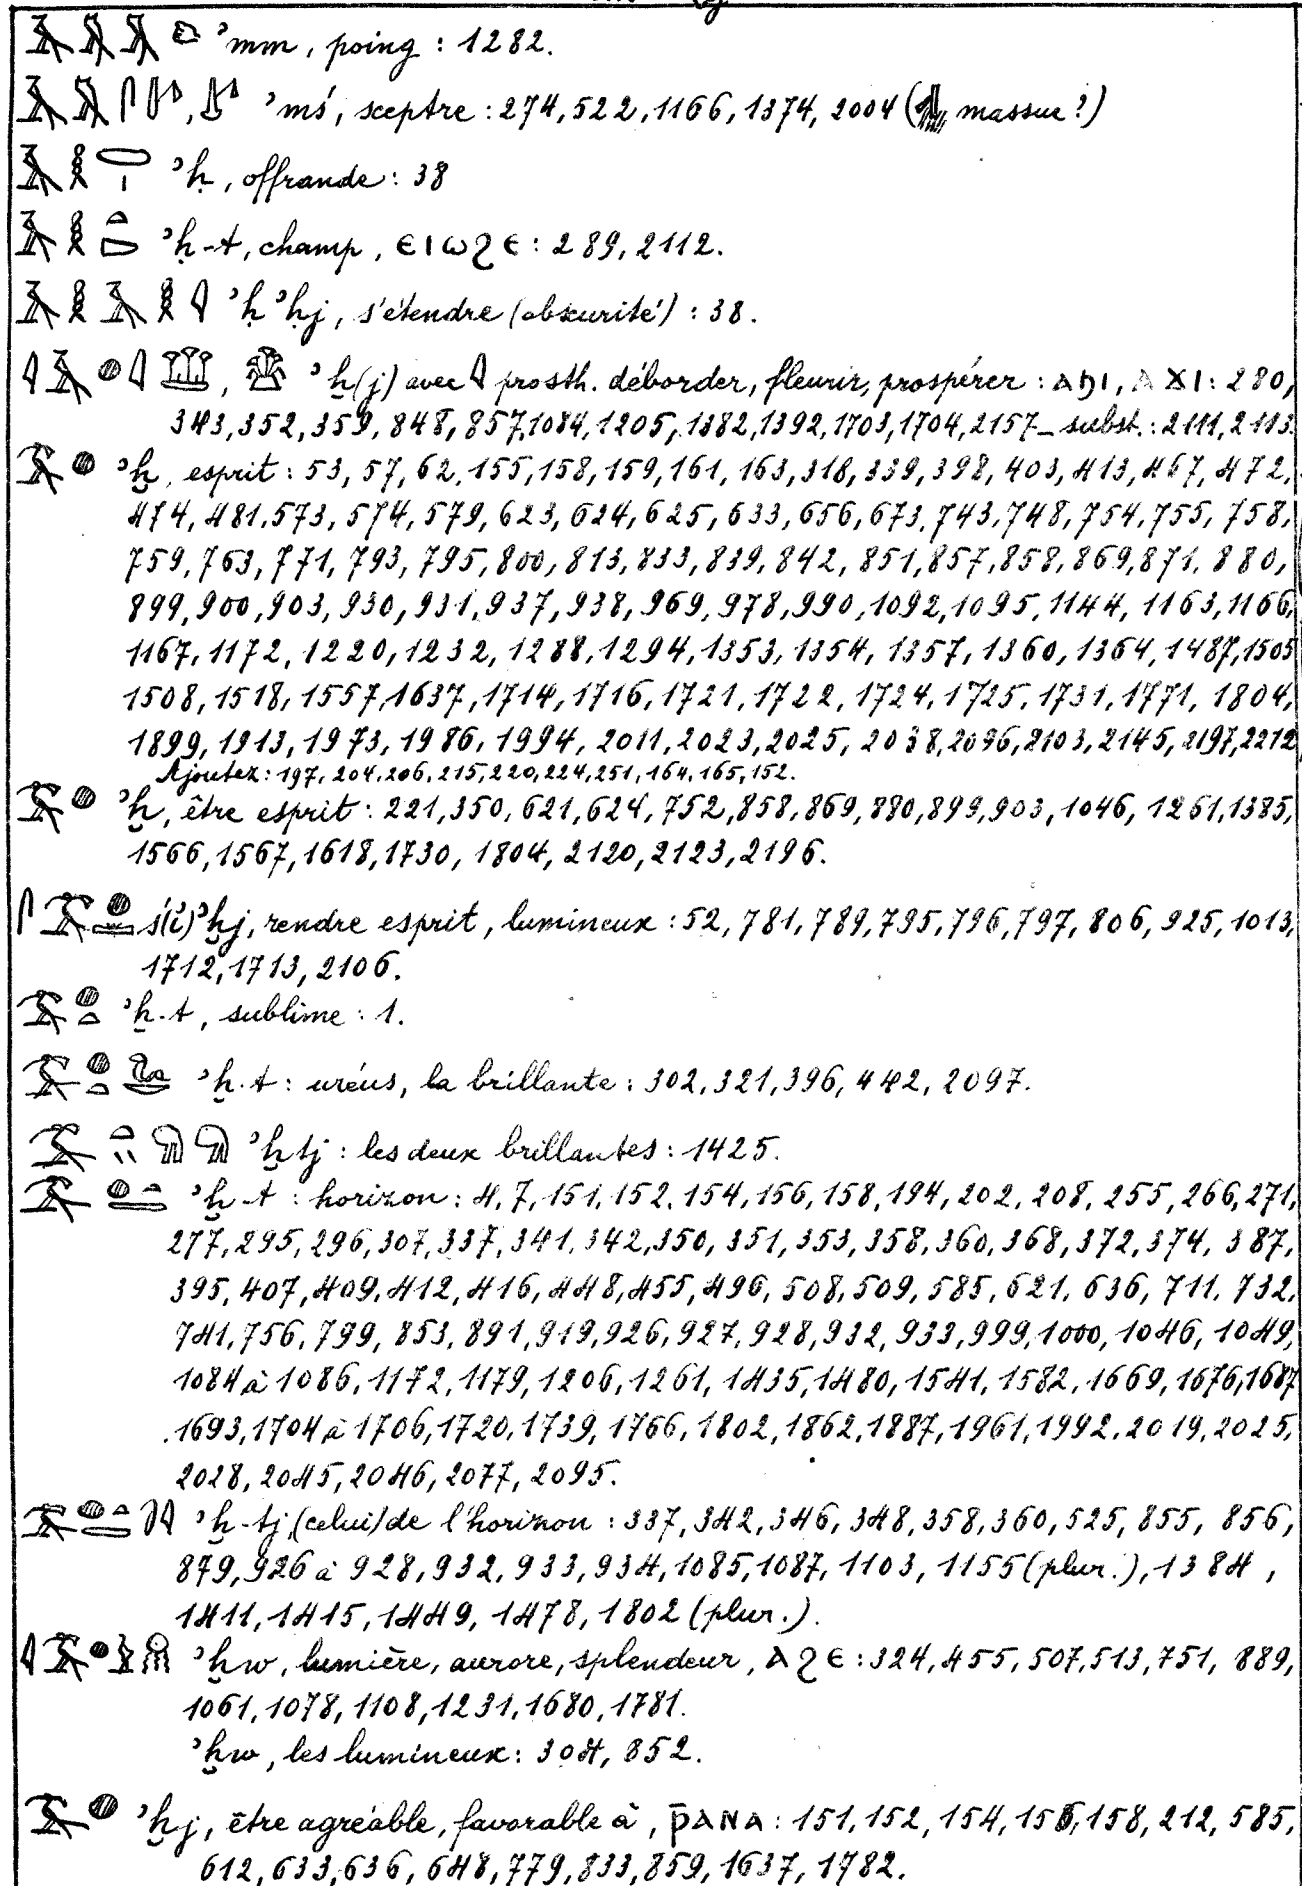 ꜣmm, poing : 1282.
ꜣmś, sceptre : 274, 522, 1166, 1374, 2004 ( massue ?)
ꜣḥ, offrande : 38
ꜣḥ-t, champ, ⲉⲓⲱϩⲉ : 289, 2112.
ꜣḥꜣḥj, s'étendre (obscurité) : 38.
ꜣḫ(j) avec 𓇋 prosth. déborder, fleurir, prospérer : ⲁϧⲓ, ⲁⲭⲓ : 280,
343, 352, 359, 848, 857, 1084, 1205, 1382, 1392, 1703, 1704, 2157 – subst. : 2111, 2113.
ꜣḫ, esprit : 53, 57, 62, 155, 158, 159, 161, 163, 318, 339, 398, 403, 413, 467, 472,
474, 481, 573, 574, 579, 623, 624, 625, 633, 656, 673, 743, 748, 754, 755, 758,
759, 763, 771, 793, 795, 800, 813, 833, 839, 842, 851, 857, 858, 869, 871, 880,
899, 900, 903, 930, 931, 937, 938, 969, 978, 990, 1092, 1095, 1144, 1163, 1166,
1167, 1172, 1220, 1232, 1288, 1294, 1353, 1354, 1357, 1360, 1364, 1487, 1505
1508, 1518, 1557, 1637, 1714, 1716, 1721, 1722, 1724, 1725, 1731, 1771, 1804,
1899, 1913, 1973, 1986, 1994, 2011, 2023, 2025, 2038, 2096, 2103, 2145, 2197, 2212
Ajoutez : 197, 204, 206, 215, 220, 224, 251, 164, 165, 152.
ꜣḫ, être esprit : 221, 350, 621, 624, 752, 858, 869, 880, 899, 903, 1046, 1261, 1385,
1566, 1567, 1618, 1730, 1804, 2120, 2123, 2196.
ś(i)ꜣḫj, rendre esprit, lumineux : 52, 781, 789, 795, 796, 797, 806, 925, 1013,
1712, 1713, 2106.
ꜣḫ.t, sublime : 1.
ꜣḫ.t : uréus, la brillante : 302, 321, 396, 442, 2097.
ꜣḫtj : les deux brillantes : 1425.
ꜣḫ-t : horizon : 4, 7, 151, 152, 154, 156, 158, 194, 202, 208, 255, 266, 271,
277, 295, 296, 307, 337, 341, 342, 350, 351, 353, 358, 360, 368, 372, 374, 387,
395, 407, 409, 412, 416, 448, 455, 496, 508, 509, 585, 621, 636, 711, 732,
741, 756, 799, 853, 891, 919, 926, 927, 928, 932, 933, 999, 1000, 1046, 1049,
1084 à 1086, 1172, 1179, 1206, 1261, 1435, 1480, 1541, 1582, 1669, 1676, 1687
1693, 1704 à 1706, 1720, 1739, 1766, 1802, 1862, 1887, 1961, 1992, 2019, 2025,
2028, 2045, 2046, 2077, 2095.
ꜣḫ-tj (celui) de l'horizon : 337, 342, 346, 348, 358, 360, 525, 855, 856,
879, 926 à 928, 932, 933, 934, 1085, 1087, 1103, 1155 (plur.), 1384,
1411, 1415, 1449, 1478, 1802 (plur.).
ꜣḫw, lumière, aurore, splendeur, ⲁϩⲉ : 324, 455, 507, 513, 751, 889,
1061, 1078, 1108, 1231, 1680, 1781.
ꜣḫw, les lumineux : 304, 852.
ꜣḫj, être agréable, favorable à, ⲣ̄ⲁⲛⲁ : 151, 152, 154, 158, 212, 585,
612, 633, 636, 648, 779, 833, 859, 1637, 1782.